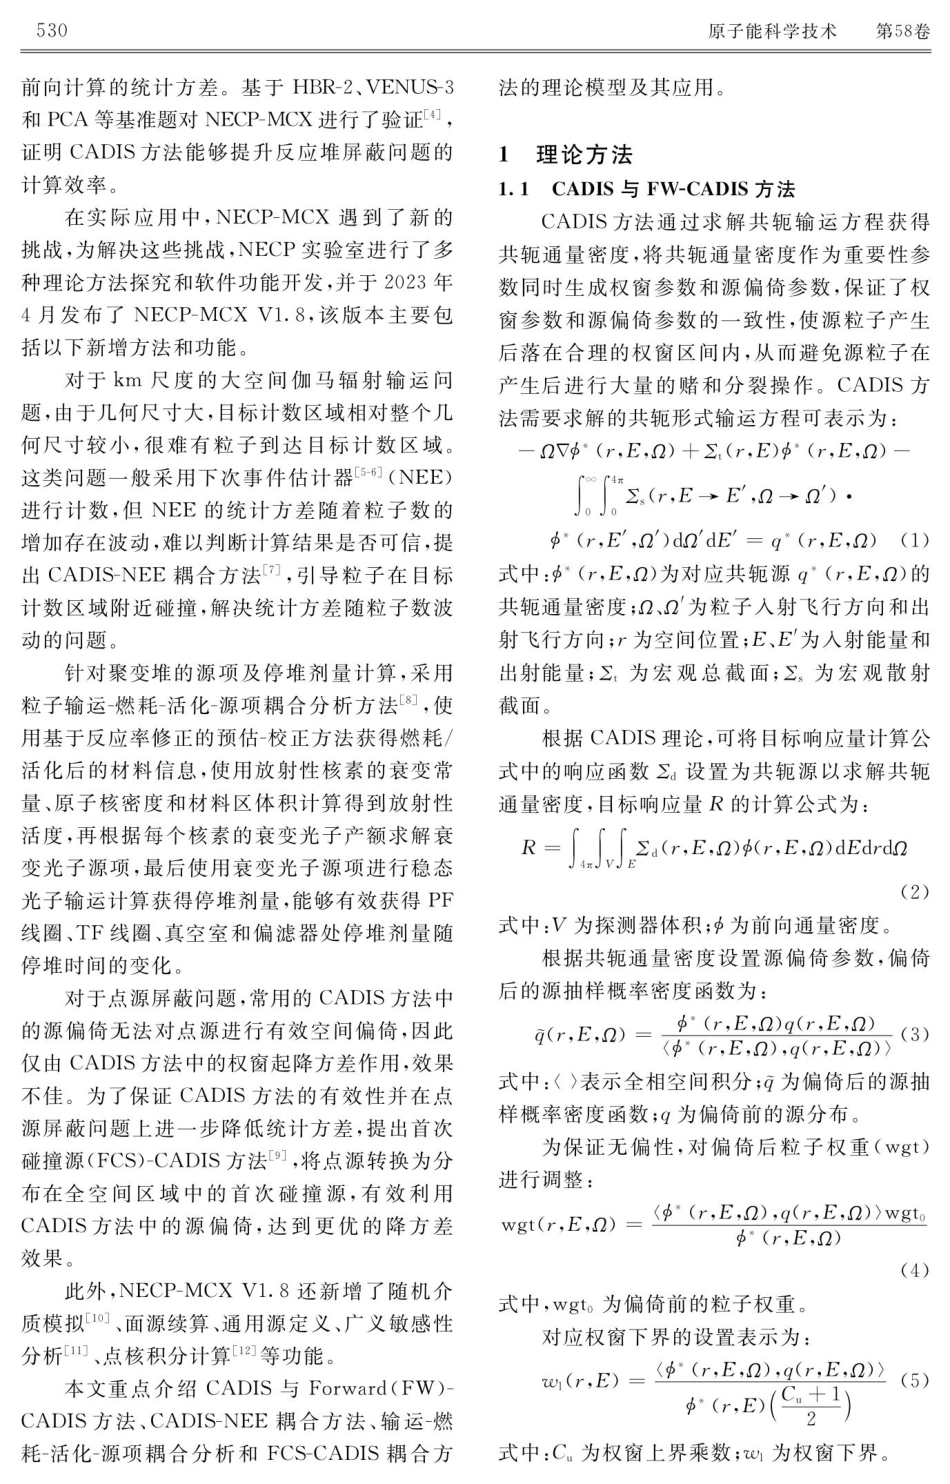 530
原子能科学技术 第58卷
前向计算的统计方差。基于 HBR-2、VENUS-3
和 PCA 等基准题对 NECP-MCX 进行了验证[4],
证明 CADIS 方法能够提升反应堆屏蔽问题的
计算效率。
在实际应用中,NECP-MCX 遇到了新的
挑战,为解决这些挑战,NECP 实验室进行了多
种理论方法探究和软件功能开发,并于 2023 年
4 月发布了 NECP-MCX V1.8,该版本主要包
括以下新增方法和功能。
对于 km 尺度的大空间伽马辐射输运问
题,由于几何尺寸大,目标计数区域相对整个几
何尺寸较小,很难有粒子到达目标计数区域。
这类问题一般采用下次事件估计器[5-6](NEE)
进行计数,但 NEE 的统计方差随着粒子数的
增加存在波动,难以判断计算结果是否可信,提
出 CADIS-NEE 耦合方法[7],引导粒子在目标
计数区域附近碰撞,解决统计方差随粒子数波
动的问题。
针对聚变堆的源项及停堆剂量计算,采用
粒子输运-燃耗-活化-源项耦合分析方法[8],使
用基于反应率修正的预估-校正方法获得燃耗/
活化后的材料信息,使用放射性核素的衰变常
量、原子核密度和材料区体积计算得到放射性
活度,再根据每个核素的衰变光子产额求解衰
变光子源项,最后使用衰变光子源项进行稳态
光子输运计算获得停堆剂量,能够有效获得 PF
线圈、TF 线圈、真空室和偏滤器处停堆剂量随
停堆时间的变化。
对于点源屏蔽问题,常用的 CADIS 方法中
的源偏倚无法对点源进行有效空间偏倚,因此
仅由 CADIS 方法中的权窗起降方差作用,效果
不佳。为了保证 CADIS 方法的有效性并在点
源屏蔽问题上进一步降低统计方差,提出首次
碰撞源(FCS)-CADIS 方法[9],将点源转换为分
布在全空间区域中的首次碰撞源,有效利用
CADIS 方法中的源偏倚,达到更优的降方差
效果。
此外,NECP-MCX V1.8 还新增了随机介
质模拟[10]、面源续算、通用源定义、广义敏感性
分析[11]、点核积分计算[12]等功能。
本文重点介绍 CADIS 与 Forward(FW)-
CADIS 方法、CADIS-NEE 耦合方法、输运-燃
耗-活化-源项耦合分析和 FCS-CADIS 耦合方
法的理论模型及其应用。
1 理论方法
1.1 CADIS 与 FW-CADIS 方法
CADIS 方法通过求解共轭输运方程获得
共轭通量密度,将共轭通量密度作为重要性参
数同时生成权窗参数和源偏倚参数,保证了权
窗参数和源偏倚参数的一致性,使源粒子产生
后落在合理的权窗区间内,从而避免源粒子在
产生后进行大量的赌和分裂操作。CADIS 方
法需要求解的共轭形式输运方程可表示为:
−Ω∇ϕ*(r,E,Ω)+Σt(r,E)ϕ*(r,E,Ω)−
∫₀^∞∫₀^4π Σs(r,E→E′,Ω→Ω′)·
ϕ*(r,E′,Ω′)dΩ′dE′ = q*(r,E,Ω) (1)
式中:ϕ*(r,E,Ω)为对应共轭源 q*(r,E,Ω)的
共轭通量密度;Ω、Ω′为粒子入射飞行方向和出
射飞行方向;r 为空间位置;E、E′为入射能量和
出射能量;Σt 为宏观总截面;Σs 为宏观散射
截面。
根据 CADIS 理论,可将目标响应量计算公
式中的响应函数 Σd 设置为共轭源以求解共轭
通量密度,目标响应量 R 的计算公式为:
R = ∫4π∫V∫E Σd(r,E,Ω)ϕ(r,E,Ω)dEdrdΩ
(2)
式中:V 为探测器体积;ϕ 为前向通量密度。
根据共轭通量密度设置源偏倚参数,偏倚
后的源抽样概率密度函数为:
q̃(r,E,Ω) = ϕ*(r,E,Ω)q(r,E,Ω) / ⟨ϕ*(r,E,Ω),q(r,E,Ω)⟩ (3)
式中:⟨ ⟩表示全相空间积分;q̃ 为偏倚后的源抽
样概率密度函数;q 为偏倚前的源分布。
为保证无偏性,对偏倚后粒子权重(wgt)
进行调整:
wgt(r,E,Ω) = ⟨ϕ*(r,E,Ω),q(r,E,Ω)⟩wgt₀ / ϕ*(r,E,Ω)
(4)
式中,wgt₀ 为偏倚前的粒子权重。
对应权窗下界的设置表示为:
wl(r,E) = ⟨ϕ*(r,E,Ω),q(r,E,Ω)⟩ / ϕ*(r,E)((Cu+1)/2) (5)
式中:Cu 为权窗上界乘数;wl 为权窗下界。